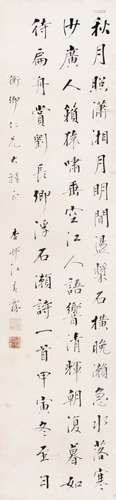 秋月照瀟湘月明聞盪槳石橫晚瀨急水落寒
沙廣猿嘯重空江人語響清輝朝復暮如
待扁舟賞劉長卿浮石瀨詩一首甲寅冬至日
衡卿仁兄大雅正 杏邨江春霖